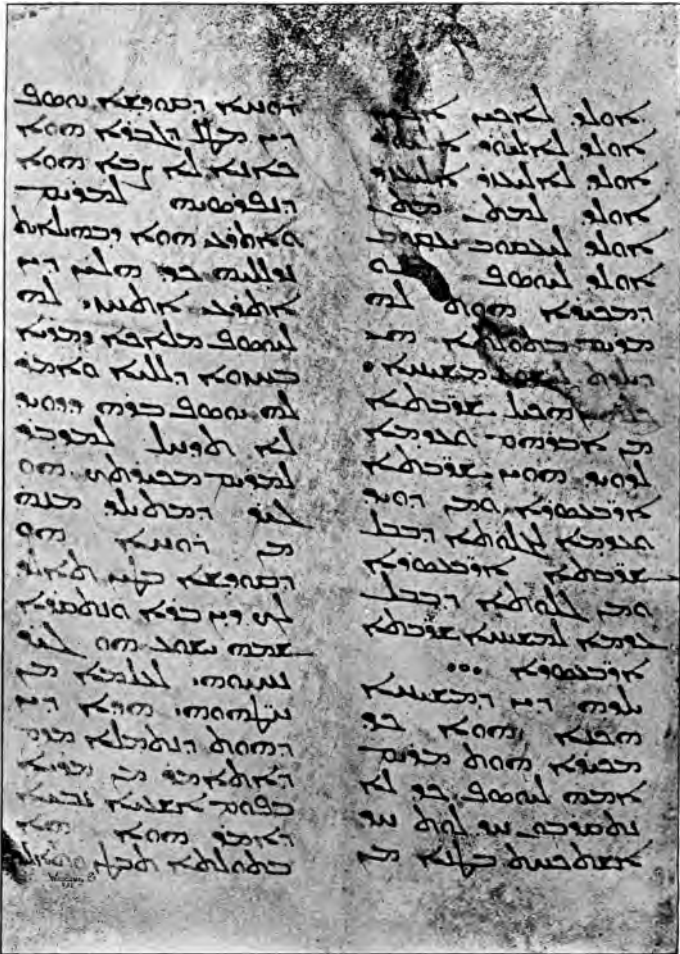 ܐܘܠܕ ܠܐܟܝܢ ܐܟܝܢ
ܐܘܠܕ ܠܐܠܝܘܕ ܐܠܝܘܕ
ܐܘܠܕ ܠܐܠܝܥܙܪ ܐܠܝܥܙܪ
ܐܘܠܕ ܠܡܬܢ ܡܬܢ
ܐܘܠܕ ܠܝܥܩܘܒ ܝܥܩܘܒ
ܐܘܠܕ ܠܝܘܣܦ ܗܘ
ܕܡܟܝܪܐ ܗܘܬ ܠܗ
ܡܪܝܡ ܒܬܘܠܬܐ ܗܝ
ܕܝܠܕܬ ܠܝܫܘܥ ܡܫܝܚܐ
ܗܟܝܠ ܫܪ̈ܒܬܐ
ܡܢ ܐܒܪܗܡ ܘܥܕܡܐ
ܠܕܘܝܕ ܗܘܝܢ ܫܪ̈ܒܬܐ
ܐܪ̈ܒܥܣܪܐ ܘܡܢ ܕܘܝܕ
ܘܥܕܡܐ ܠܓܠܘܬܐ ܕܒܒܠ
ܫܪ̈ܒܬܐ ܐܪ̈ܒܥܣܪܐ
ܘܡܢ ܓܠܘܬܐ ܕܒܒܠ
ܥܕܡܐ ܠܡܫܝܚܐ ܫܪ̈ܒܬܐ
ܐܪ̈ܒܥܣܪܐ
ܝܠܕܗ ܕܝܢ ܕܡܫܝܚܐ
ܗܟܢܐ ܗܘܐ ܟܕ
ܡܟܝܪܐ ܗܘܬ ܡܪܝܡ
ܐܡܗ ܠܝܘܣܦ ܟܕ ܠܐ
ܢܬܩܪܒܘ ܚܕ ܠܘܬ ܚܕ
ܐܫܬܟܚܬ ܒܛܢܐ ܡܢ
ܪܘܚܐ ܕܩܘܕܫܐ ܝܘܣܦ
ܕܝܢ ܡܛܠ ܕܓܒܪܐ ܗܘܐ
ܟܐܢܐ ܠܐ ܨܒܐ ܗܘܐ
ܕܢܦܪܣܝܗ ܠܡܪܝܡ
ܘܐܬܪܥܝ ܗܘܐ ܕܒܫܠܝܐܝܬ
ܟܕ ܗܠܝܢ ܕܝܢ
ܐܬܪܥܝ ܐܬܚܙܝ ܠܗ
ܠܝܘܣܦ ܡܠܐܟܐ ܕܡܪܝܐ
ܒܚܙܘܐ ܕܠܠܝܐ ܘܐܡܪ
ܠܗ ܝܘܣܦ ܒܪܗ ܕܕܘܝܕ
ܠܐ ܬܕܚܠ ܠܡܕܒܪܘ
ܠܡܪܝܡ ܡܟܝܪܬܟ ܗܘ
ܓܝܪ ܕܡܬܝܠܕ ܡܢܗ
ܡܢ ܪܘܚܐ ܗܘ
ܕܩܘܕܫܐ ܒܛܝܢ ܬܐܠܕ
ܠܟܝ ܕܝܢ ܒܪܐ ܘܢܬܩܪܐ
ܫܡܗ ܝܫܘܥ ܗܘ ܓܝܪ
ܢܚܝܘܗܝ ܠܥܠܡܐ ܡܢ
ܚܛ̈ܗܘܗܝ ܗܕܐ ܕܝܢ
ܕܗܘܬ ܕܢܬܡܠܐ ܡܕܡ
ܕܐܬܐܡܪ ܡܢ ܡܪܝܐ
ܒܦܘܡ ܐܫܥܝܐ ܢܒܝܐ
ܕܐܡܪ ܗܘܐ ܗܐ
ܒܬܘܠܬܐ ܬܒܛܢ ܘܬܐܠܕ